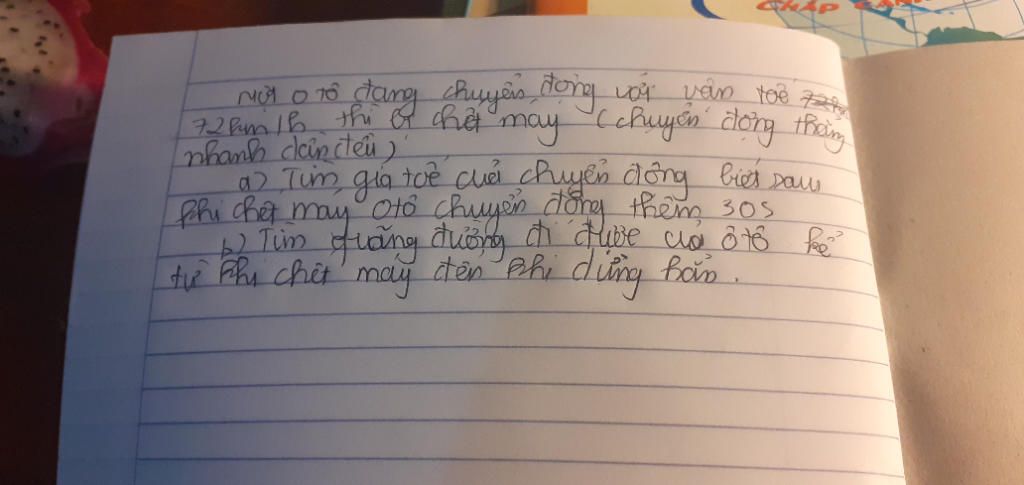 CHÁP CÁNH
Một ô tô đang chuyển động với vận tốc
72km/h thì bị chết máy (chuyển động thẳng
nhanh dần đều)
a) Tìm gia tốc của chuyển động biết sau
khi chết máy ôtô chuyển động thêm 30s
b) Tìm quãng đường đi được của ôtô kể
từ khi chết máy đến khi dừng hẳn.